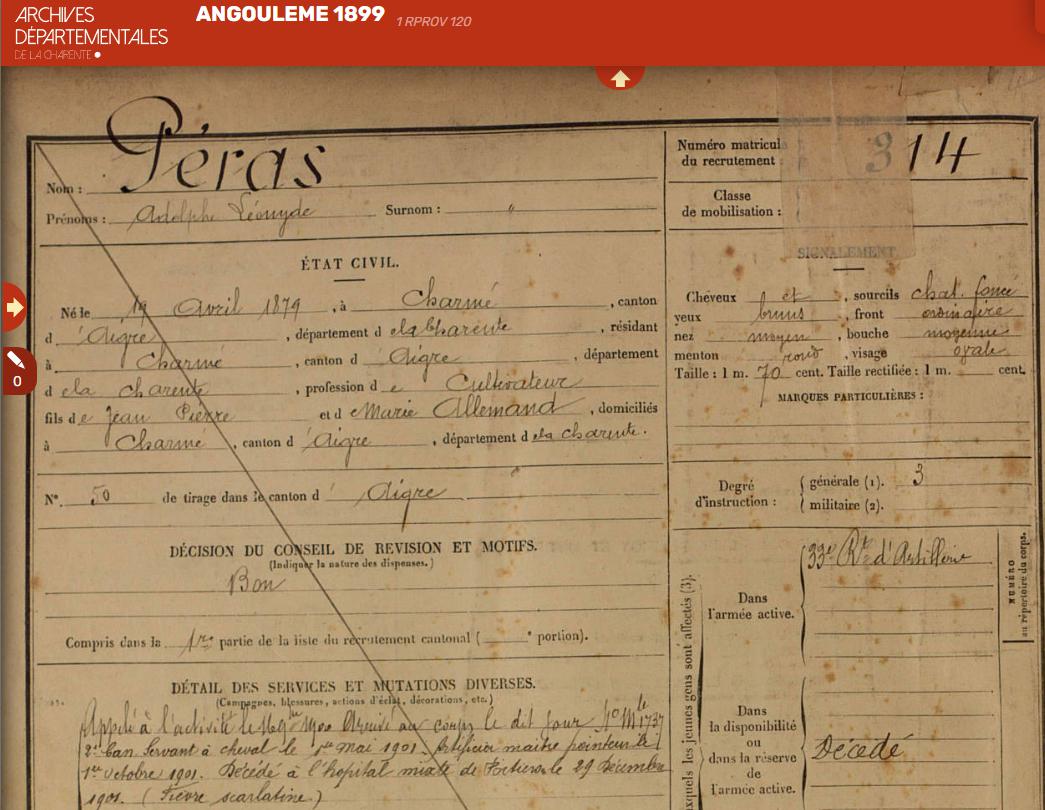 ARCHIVES
DÉPARTEMENTALES
DE LA CHARENTE
ANGOULEME 1899
1 RPROV 120
0
Nom : Péras
Prénoms : Adolphe Léonyde Surnom : "
Numéro matricul
du recrutement : 314
Classe
de mobilisation :
ÉTAT CIVIL.
Né le 19 Avril 1879, à Charmé, canton
d'Aigre, département de la Charente, résidant
à Charmé, canton d'Aigre, département
de la Charente, profession de Cultivateur
fils de Jean Pierre et de Marie Allemand, domiciliés
à Charmé, canton d'Aigre, département de la Charente.
N° 50 de tirage dans le canton d'Aigre
SIGNALEMENT.
Cheveux et, sourcils chat. foncé
yeux bruns, front ordinaire
nez moyen, bouche moyenne
menton rond, visage ovale
Taille : 1 m. 70 cent. Taille rectifiée : 1 m. cent.
MARQUES PARTICULIÈRES :
Degré
d'instruction :
générale (1). 3
militaire (2).
DÉCISION DU CONSEIL DE REVISION ET MOTIFS.
(Indiquer la nature des dispenses.)
Bon
Compris dans la 1re partie de la liste du recrutement cantonal ( e portion).
DÉTAIL DES SERVICES ET MUTATIONS DIVERSES.
(Campagnes, blessures, actions d'éclat, décorations, etc.)
Appelé à l'activité le 1900 Arrivé au corps le dit jour No Mle 1737
2e Can. servant à cheval le 1er mai 1901. Artificier maître pointeur le
1er Octobre 1901. Décédé à l'hopital mixte de Poitiers le 29 Décembre
1901. (Fièvre scarlatine.)
xquels les jeunes gens sont affectés (3).
Dans
l'armée active.
33e Rt d'Artillerie
NUMÉRO
au répertoire du corps.
Dans
la disponibilité
ou
dans la réserve
de
l'armée active.
Décédé